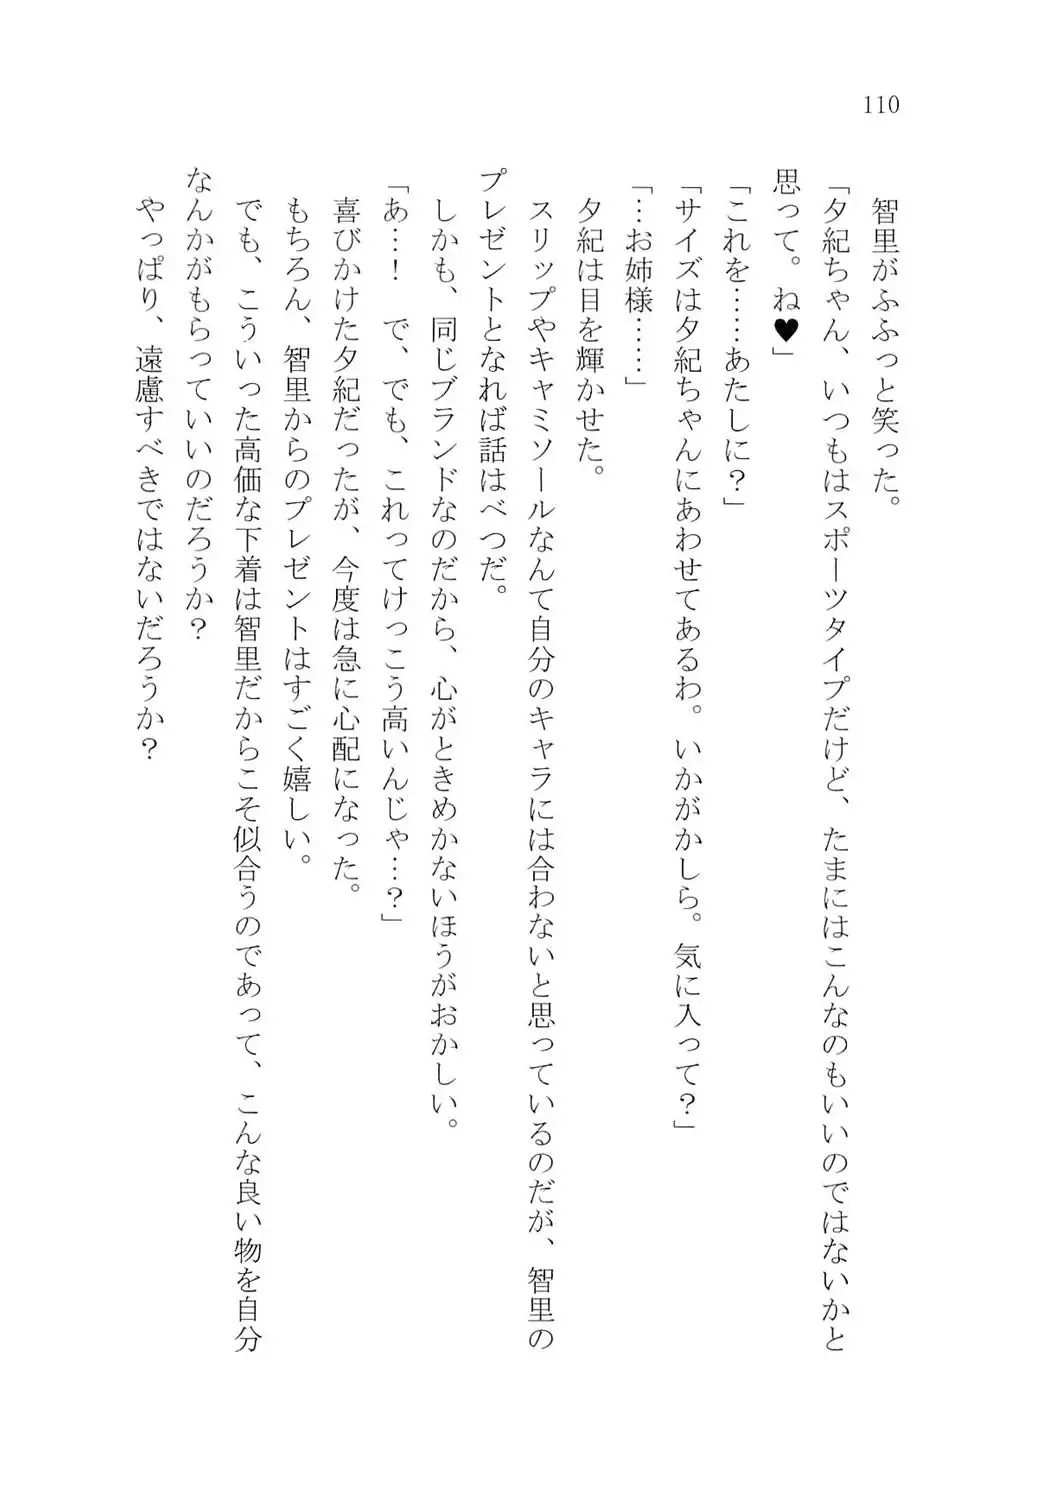 110
智里がふふっと笑った。
「夕紀ちゃん、いつもはスポーツタイプだけど、たまにはこんなのもいいのではないかと
思って。ね♥」
「これを……あたしに？」
「サイズは夕紀ちゃんにあわせてあるわ。いかがかしら。気に入って？」
「…お姉様……」
夕紀は目を輝かせた。
スリップやキャミソールなんて自分のキャラには合わないと思っているのだが、智里の
プレゼントとなれば話はべつだ。
しかも、同じブランドなのだから、心がときめかないほうがおかしい。
「あ…！　で、でも、これってけっこう高いんじゃ…？」
喜びかけた夕紀だったが、今度は急に心配になった。
もちろん、智里からのプレゼントはすごく嬉しい。
でも、こういった高価な下着は智里だからこそ似合うのであって、こんな良い物を自分
なんかがもらっていいのだろうか？
やっぱり、遠慮すべきではないだろうか？